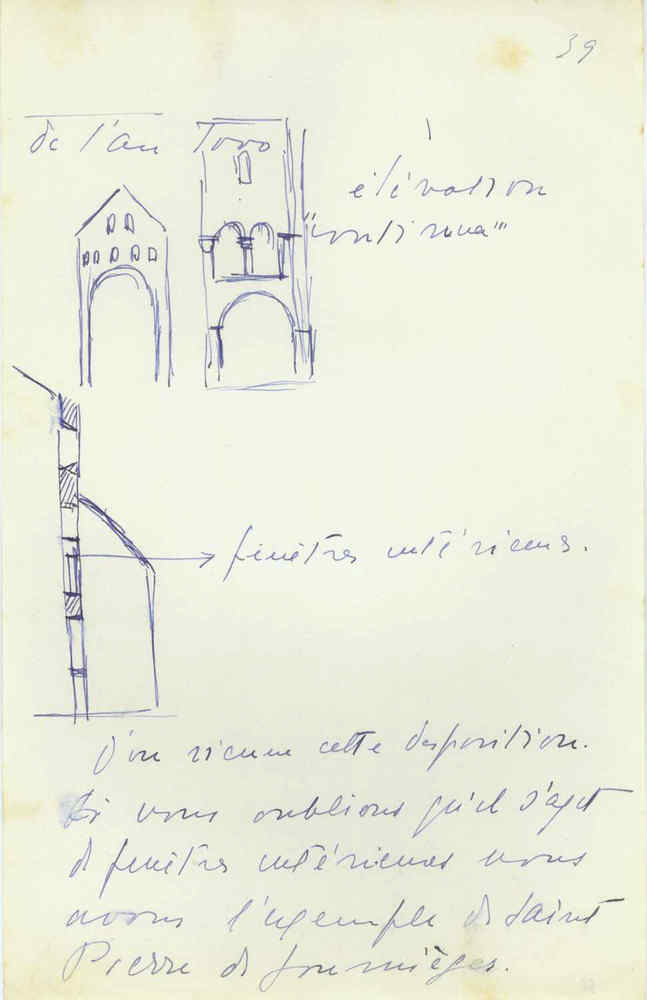 39
de l'an 1000
élévation
"continua"
fenêtres intérieures.
D'ou vienne cette disposition.
Si nous oublions qu'il s'agit
de fenêtres intérieures nous
avons l'exemple de Saint
Pierre de Jumièges.